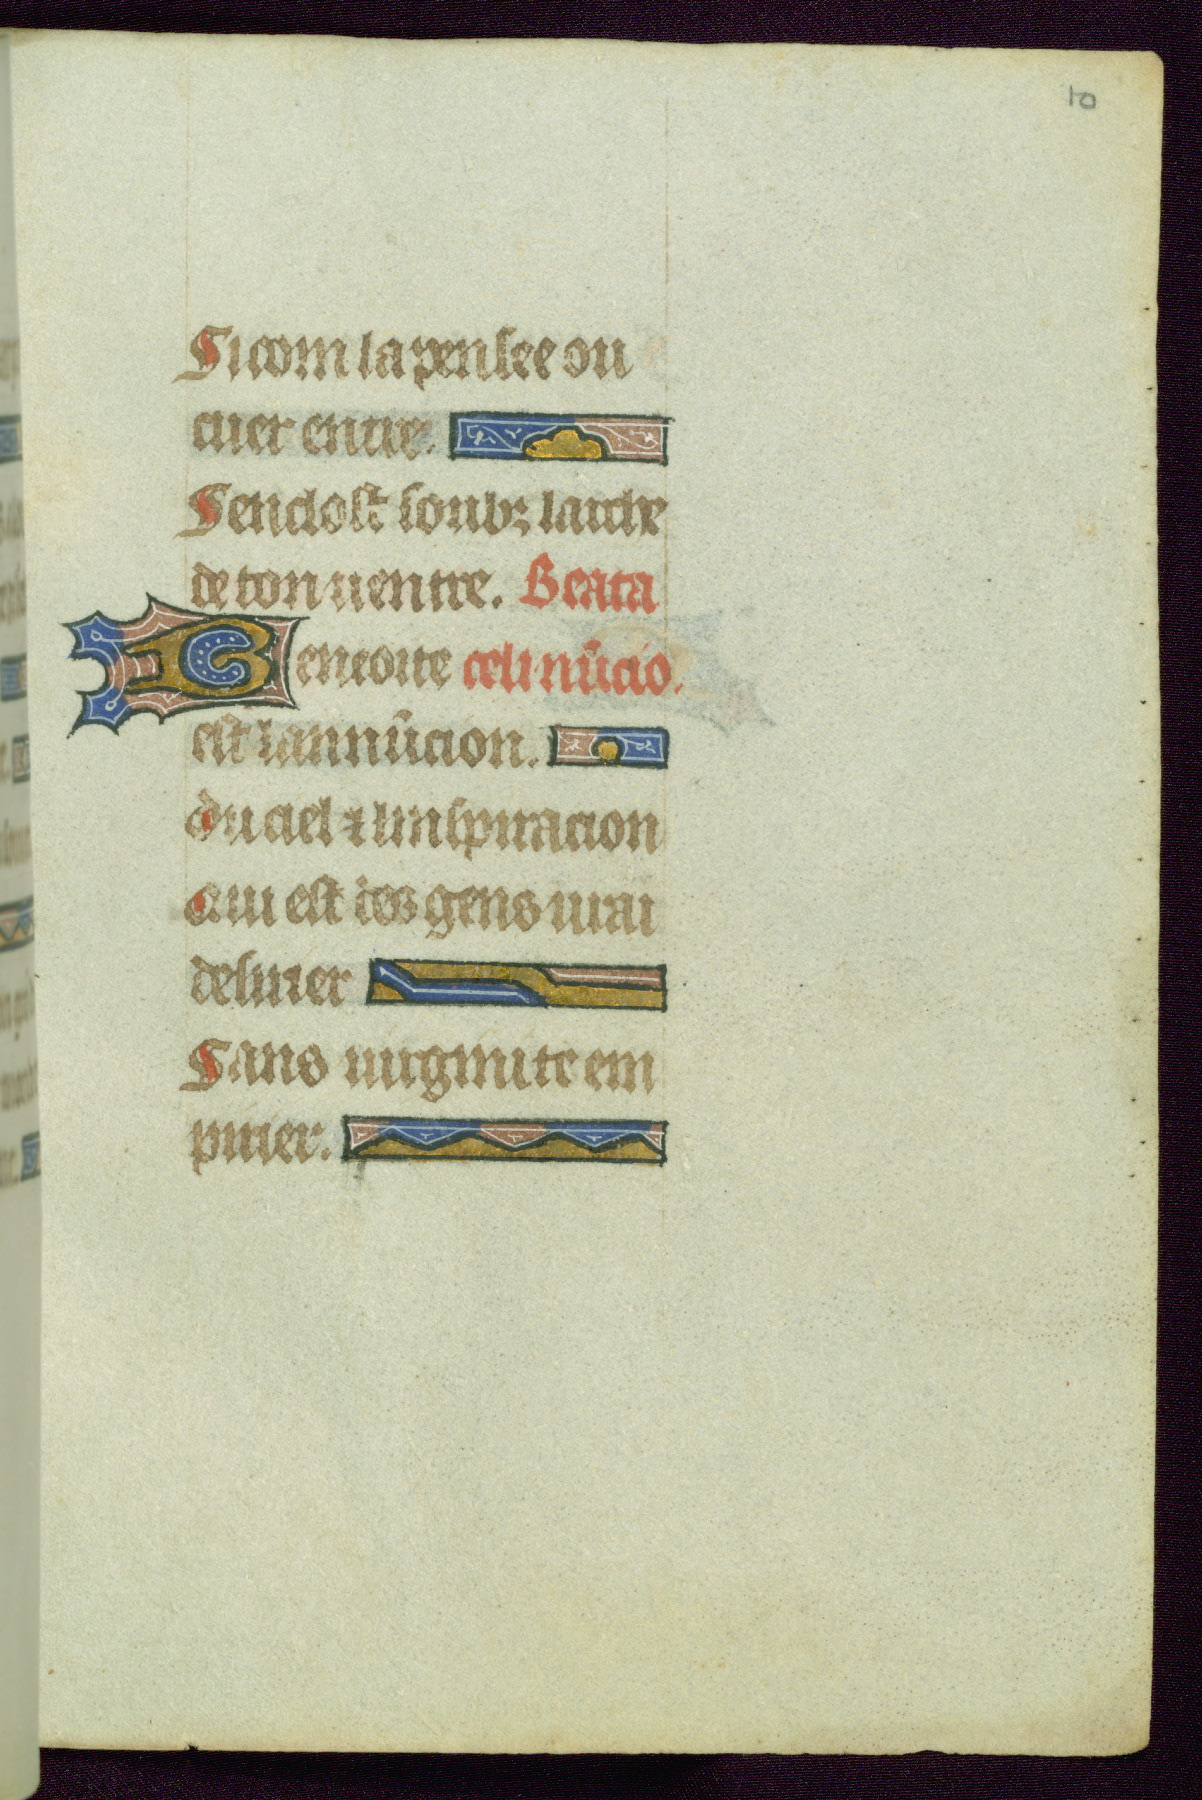 10
Si com la pensee ou
cuer entre.
Senclost soubz larche
de ton uentre. Beata
Beneoite celi nũcio.
est lannũcion.
du ciel ⁊ linspiracion
Qui est des gens urai
desirier
Sans uirginite em
pirier.